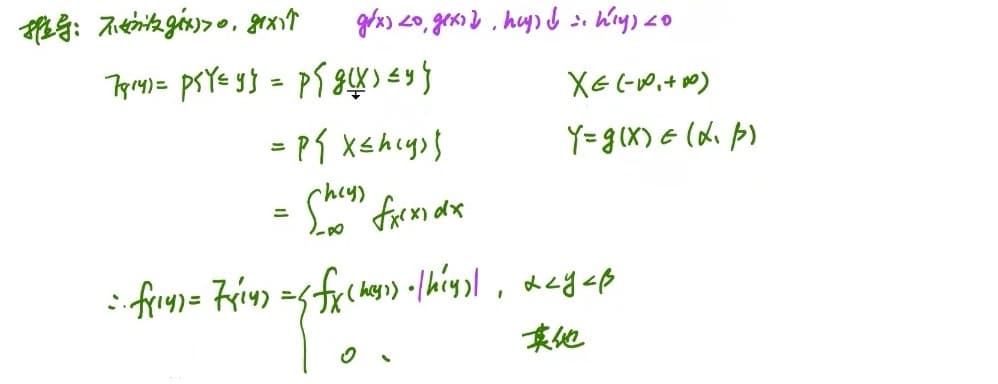 推导: 不妨设g'(x)>0, g(x)↑ g'(x)<0, g(x)↓, h(y)↓ ∴ h'(y)<0
F_Y(y) = P{Y≤y} = P{g(X)≤y} X∈(-∞,+∞)
= P{X≤h(y)} Y=g(X)∈(α, β)
= ∫_{-∞}^{h(y)} f_X(x)dx
∴ f_Y(y) = F_Y'(y) = { f_X(h(y))·|h'(y)|, α<y<β
0, 其他